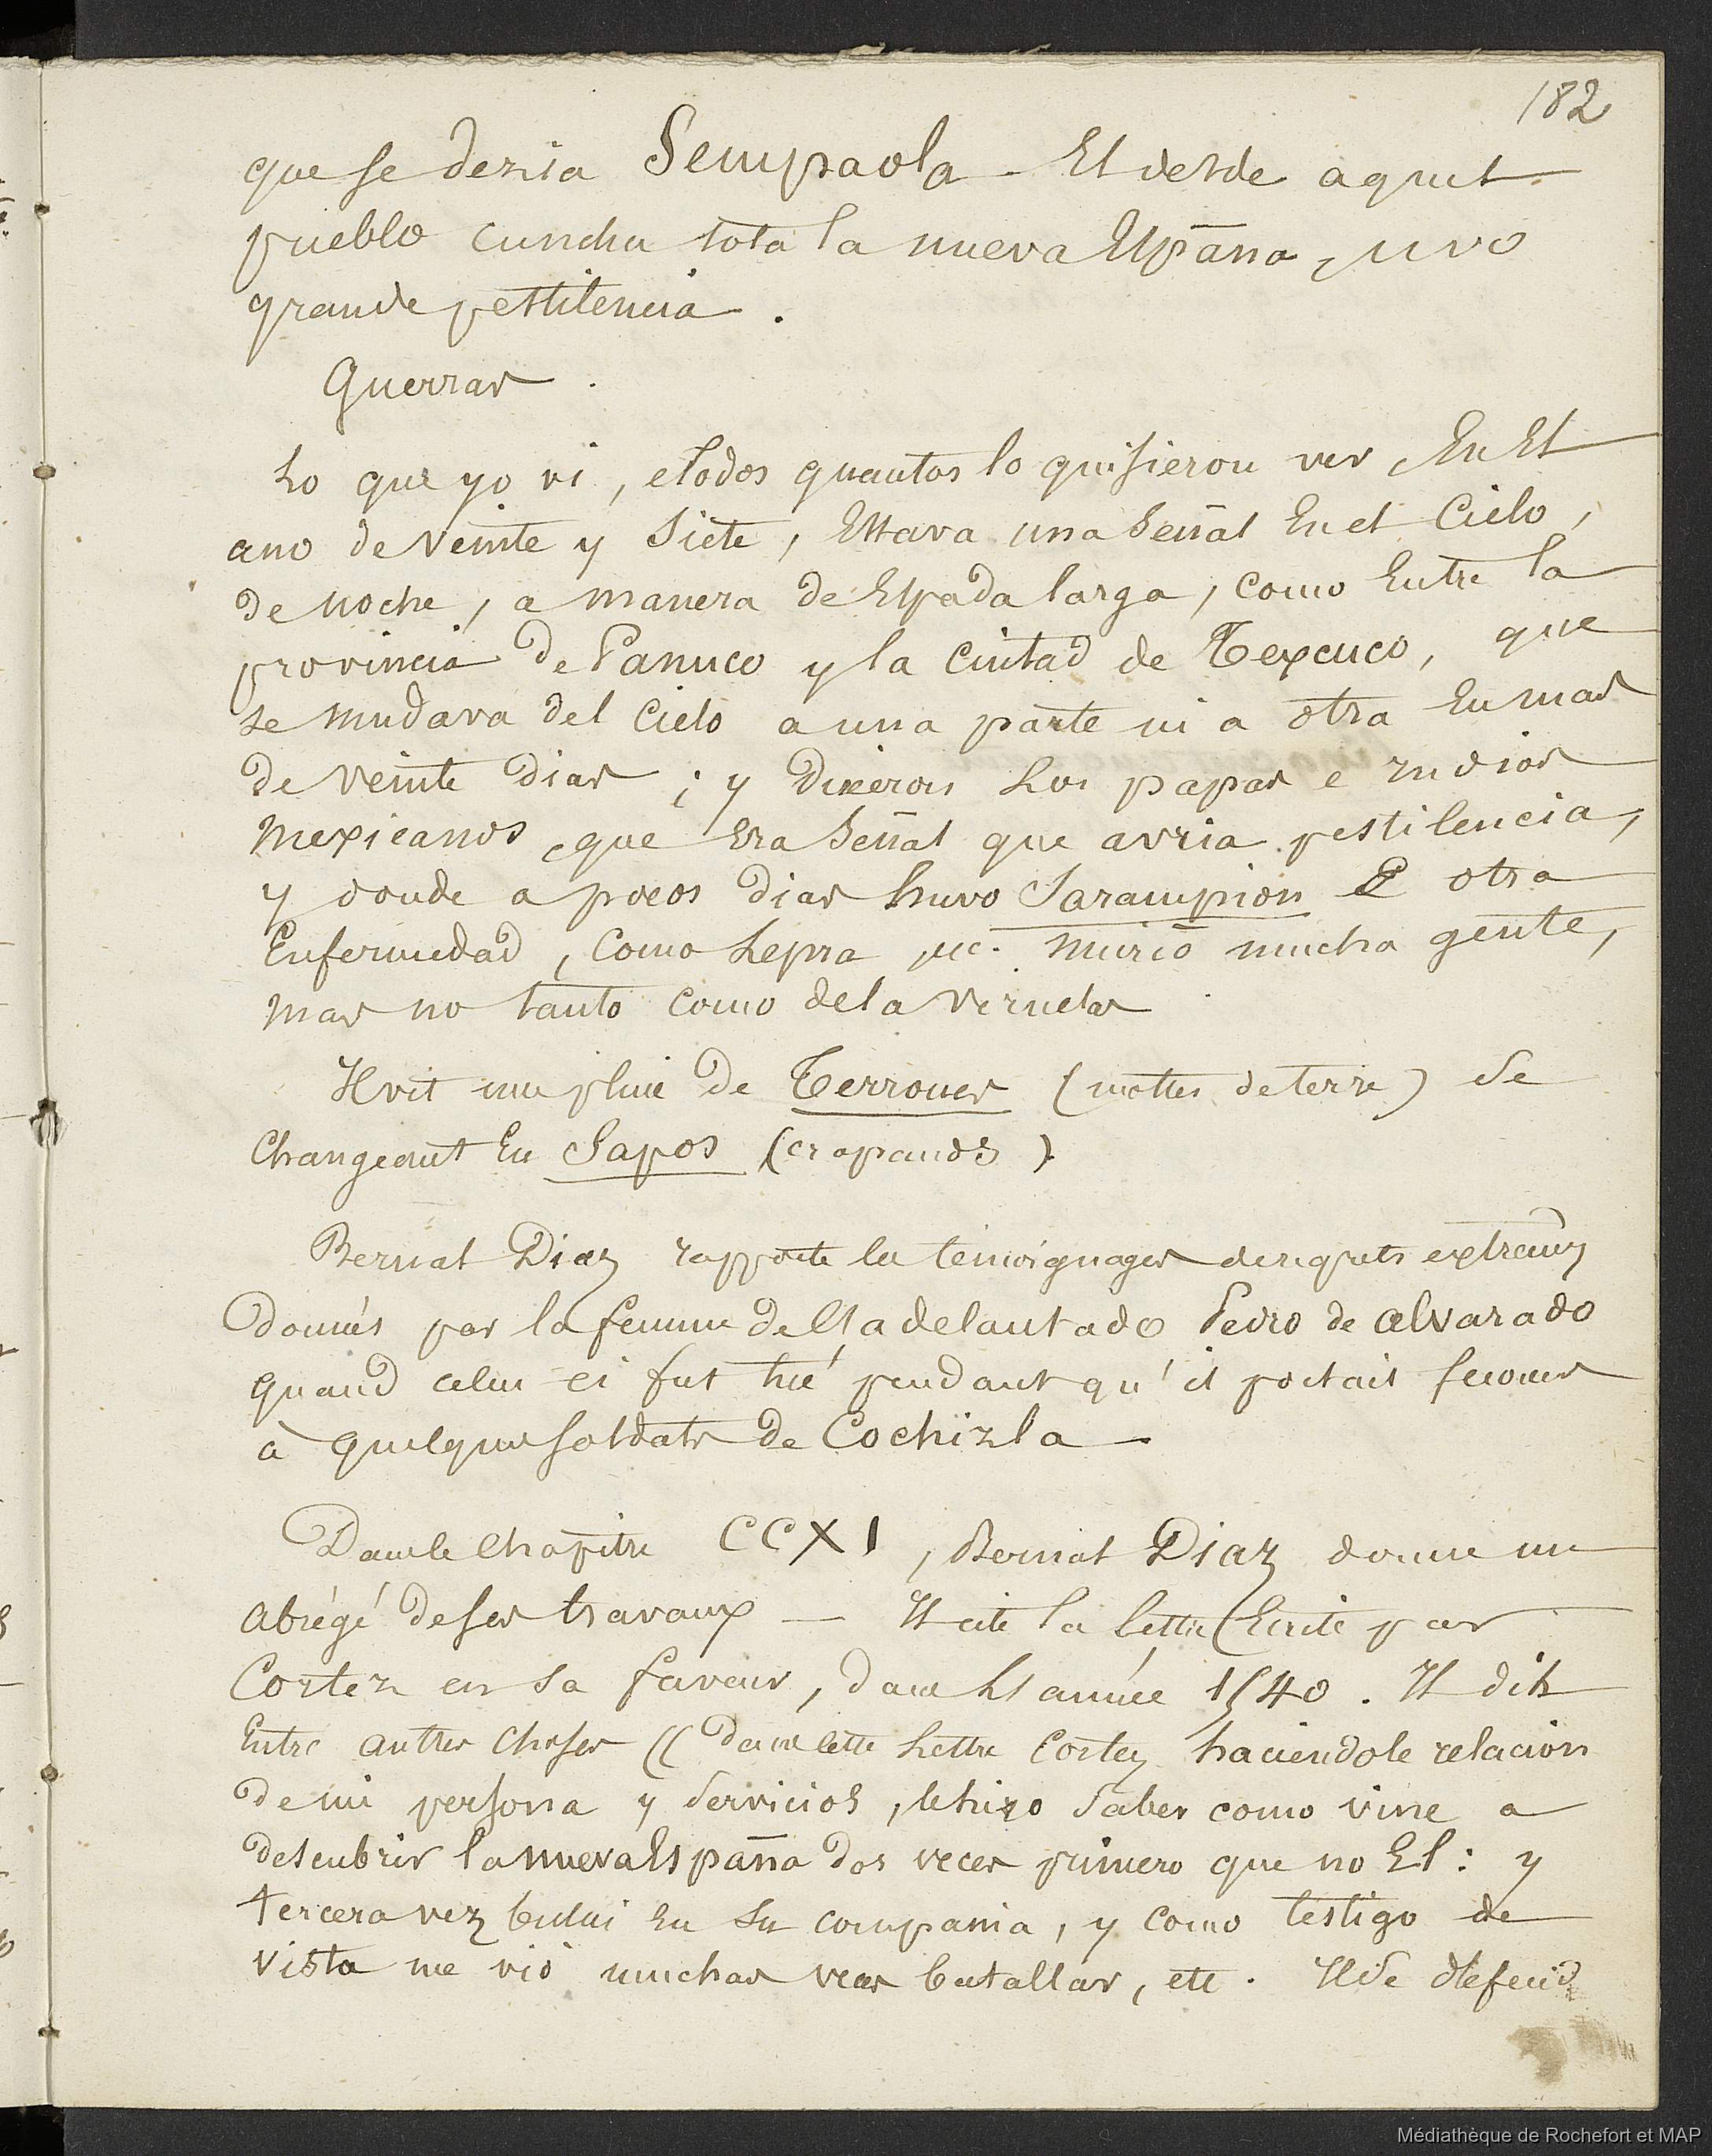 182
que se dezia Sempaola - El desde aquel
pueblo cundia tota la nueva Espāna, uvo
grande pestilencia.
Guerras.
Lo que yo vi, e todos quantos lo quisieron ver, En El
ano de veinte y siete, Estava una señal En el Cielo,
de noche, a manera de Espada larga, como Entre la
provincia de Panuco y la ciutad de Texcuco, que
se mudava del cielo a una parte ni a otra En mas
de veinte dias; y dixeron Los papas e indios
mexicanos, que Era señal que avria pestilencia,
y donde a pocos dias huvo Sarampion E otra
Enfermedad, como Lepra, etc. Murió mucha gente,
mas no tanto como de la veruelas
Il vit une pluie de Terrones (mottes de terre) se
changeant En Sapos (crapauds).
Bernal Diaz rapporte les temoignages de regrets extrêmes
donnés par la femme de El adelantado Pedro de Alvarado
quand celui-ci fut tué pendant qu'il portait secours
à quelques soldats de Cochizla -
Dans le Chapitre CCXI, Bernal Diaz donne un
abrégé de ses travaux — Il cite la lettre Ecrite par
Cortez en sa faveur, dans El année 1540. Il dit
Entre autres choses (( dans cette Lettre Cortez haciendole relacion
de mi persona y servicios, le hizo saber como vine a
descubrir la nueva Espāna dos veces primero que no El: y
tercera vez bului en su compania, y como testigo de
vista me vió muchas veces batallar, etc. Il se défend
Médiathèque de Rochefort et MAP